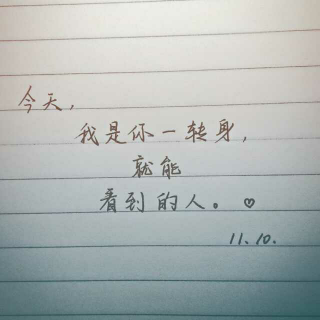 今天,
我是你一转身,
就能
看到的人。♡
11.10.